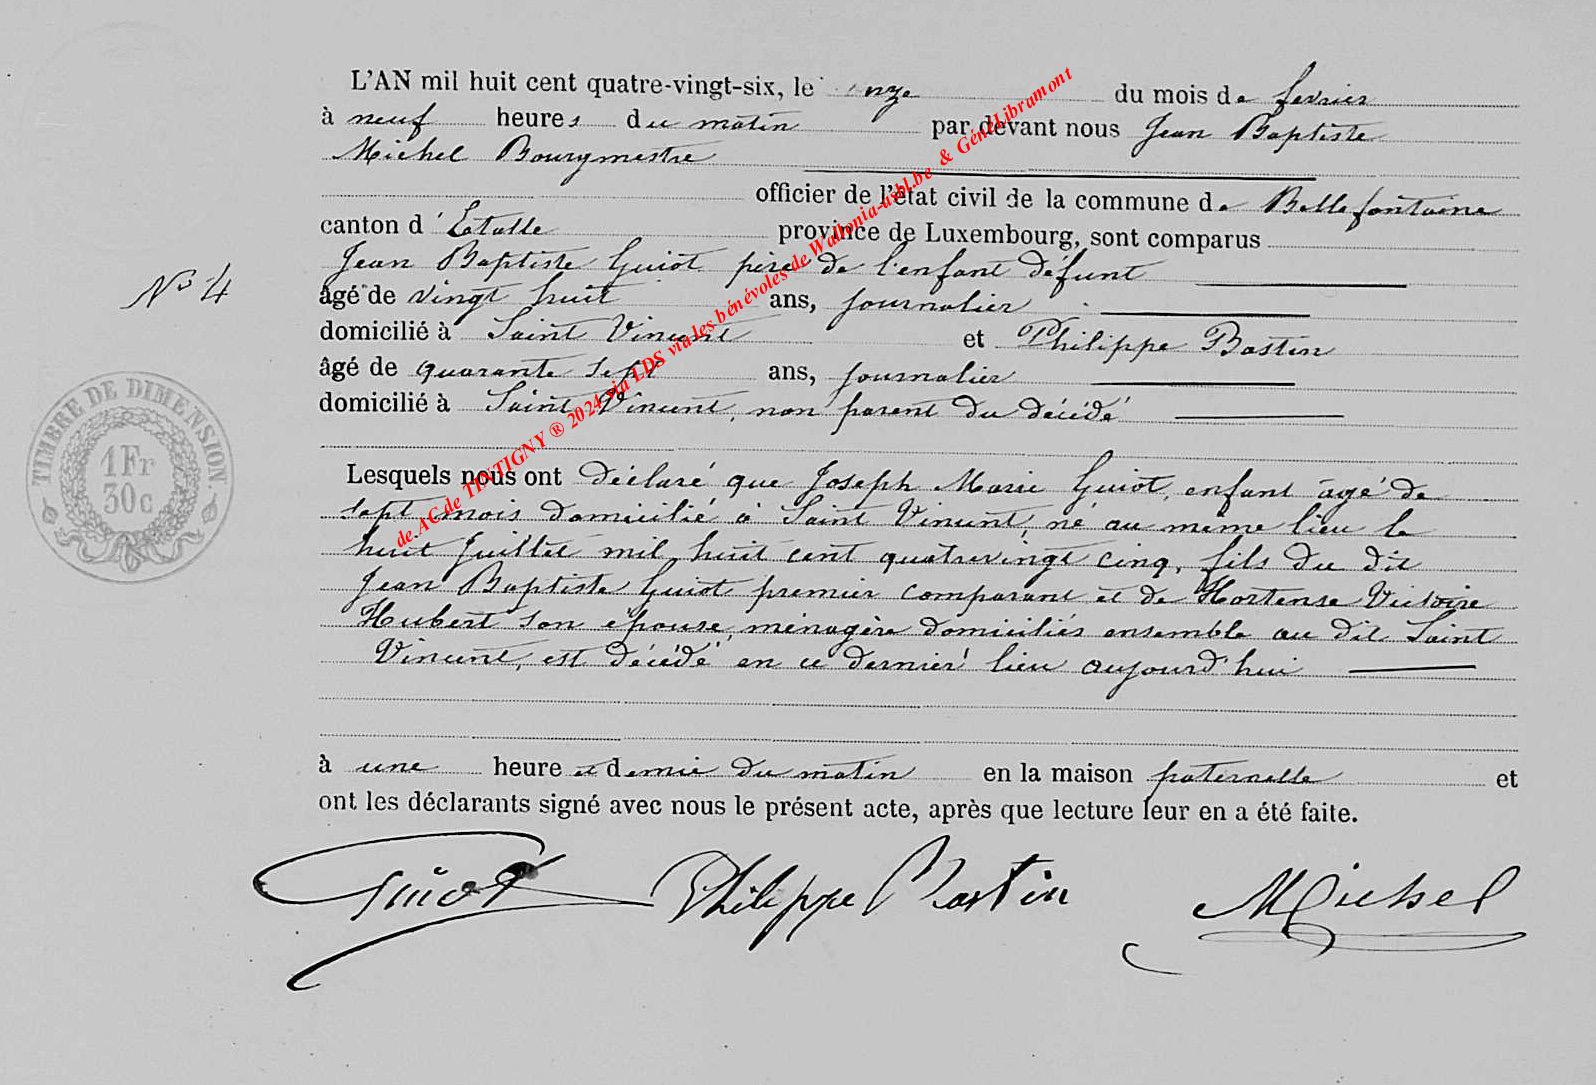 L'AN mil huit cent quatre-vingt-six, le onze du mois de fevrier
à neuf heures du matin par devant nous Jean Baptiste
Michel Bourgmestre
officier de l'état civil de la commune de Bellefontaine
canton d'Etalle province de Luxembourg, sont comparus
Jean Baptiste Guiot père de l'enfant défunt
N° 4
âgé de vingt huit ans, journalier
domicilié à Saint Vincent et Philippe Bastin
âgé de quarante sept ans, journalier
domicilié à Saint Vincent, non parent du décédé
TIMBRE DE DIMENSION
1 Fr
30c
Lesquels nous ont déclaré que Joseph Marie Guiot, enfant âgé de
sept mois domicilié à Saint Vincent, né au même lieu le
huit Juillet mil huit cent quatrevingt cinq, fils du dit
Jean Baptiste Guiot premier comparant et de Hortense Victoire
Hubert son épouse, ménagère domiciliés ensemble au dit Saint
Vincent, est décédé en ce dernier lieu aujourd'hui
à une heure et demie du matin en la maison paternelle et
ont les déclarants signé avec nous le présent acte, après que lecture leur en a été faite.
Guiot Philippe Bastin Michel
de AC de TINTIGNY ® 2024 via LDS via les bénévoles de Wallonia-asbl.be & GénéLibramont